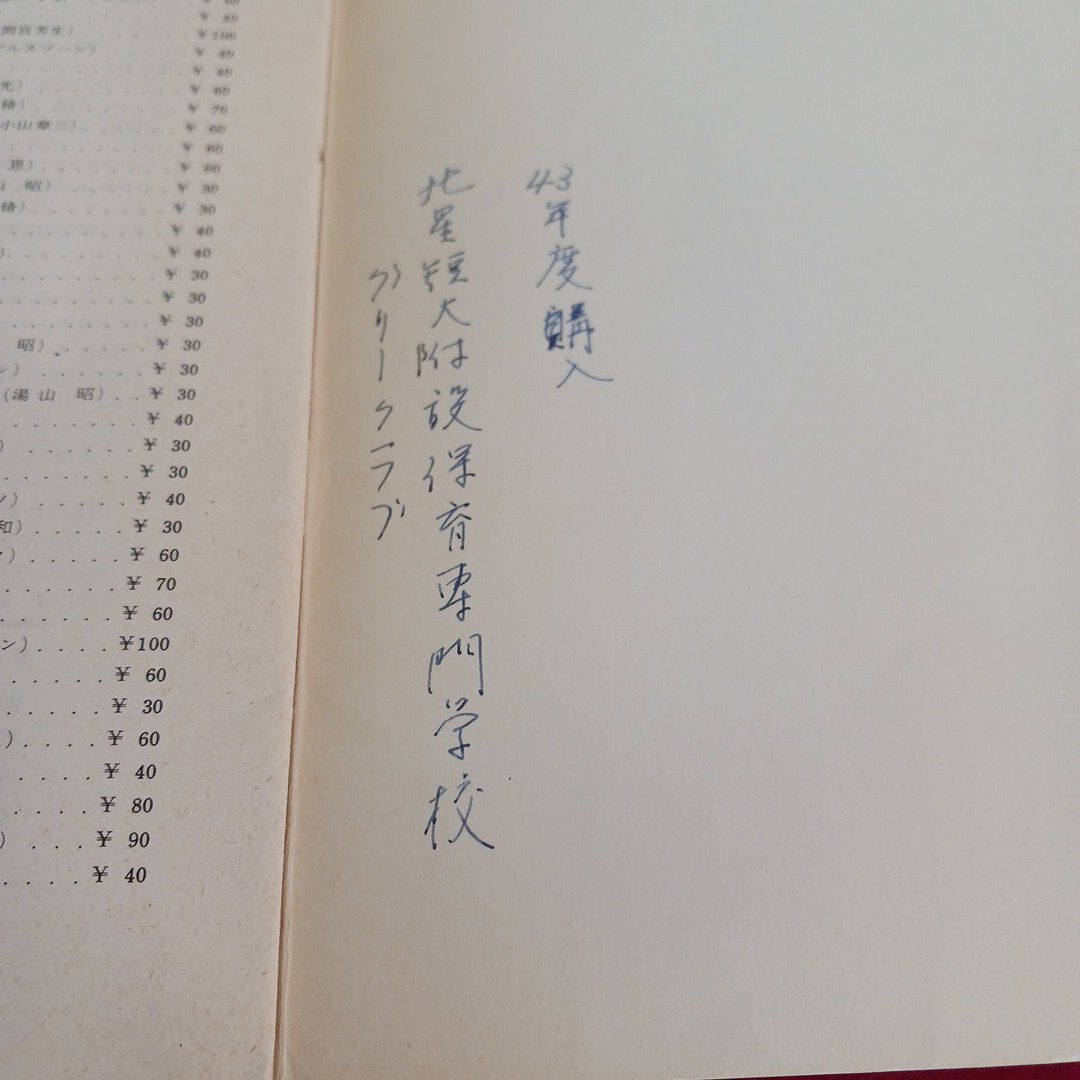 43年度購入
北星短大附設保育専門学校
グリークラブ
¥ 40
間宮芳生) ¥100
¥ 40
¥ 40
光) ¥ 60
脩) ¥ 70
小山章三) ¥ 60
¥ 60
恩) ¥ 60
山 昭) ¥ 30
脩) ¥ 30
¥ 40
) ¥ 40
¥ 30
¥ 30
¥ 30
昭) ¥ 30
ン) ¥ 30
(湯山 昭) ¥ 30
¥ 40
) ¥ 30
¥ 30
ン) ¥ 40
和) ¥ 30
) ¥ 60
¥ 70
¥ 60
ン) ¥100
¥ 60
¥ 30
) ¥ 60
¥ 40
¥ 80
) ¥ 90
¥ 40